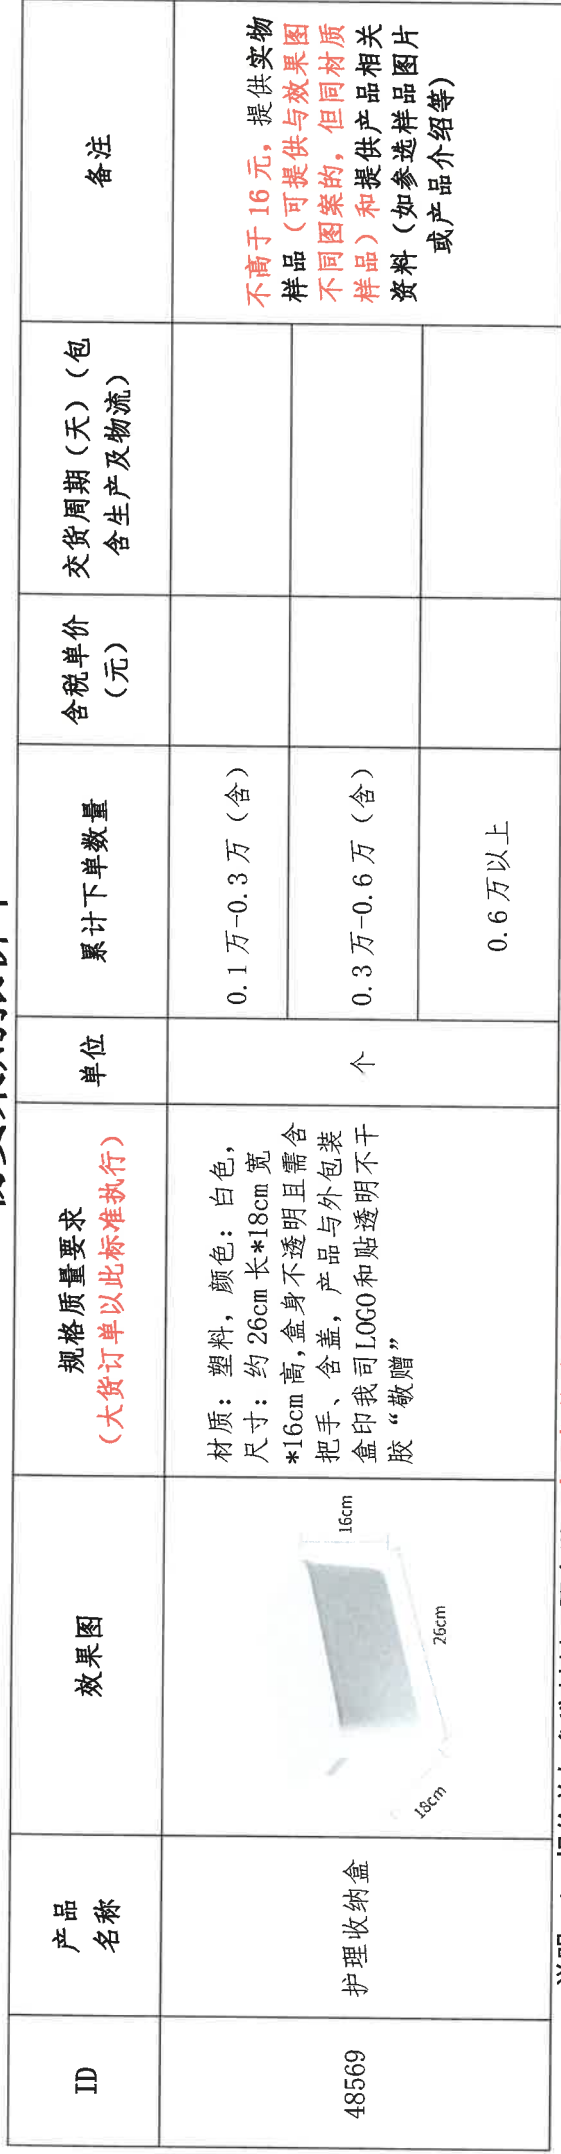 ID
产品
名称
效果图
规格质量要求
（大货订单以此标准执行）
单位
累计下单数量
含税单价
（元）
交货周期（天）（包
含生产及物流）
备注
48569
护理收纳盒
16cm
26cm
18cm
材质：塑料，颜色：白色，
尺寸：约26cm长*18cm宽
*16cm高,盒身不透明且需含
把手、含盖，产品与外包装
盒印我司LOGO和贴透明不干
胶“敬赠”
个
0.1万-0.3万（含）
0.3万-0.6万（含）
0.6万以上
不高于16元，提供实物
样品（可提供与效果图
不同图案的，但同材质
样品）和提供产品相关
资料（如参选样品图片
或产品介绍等）